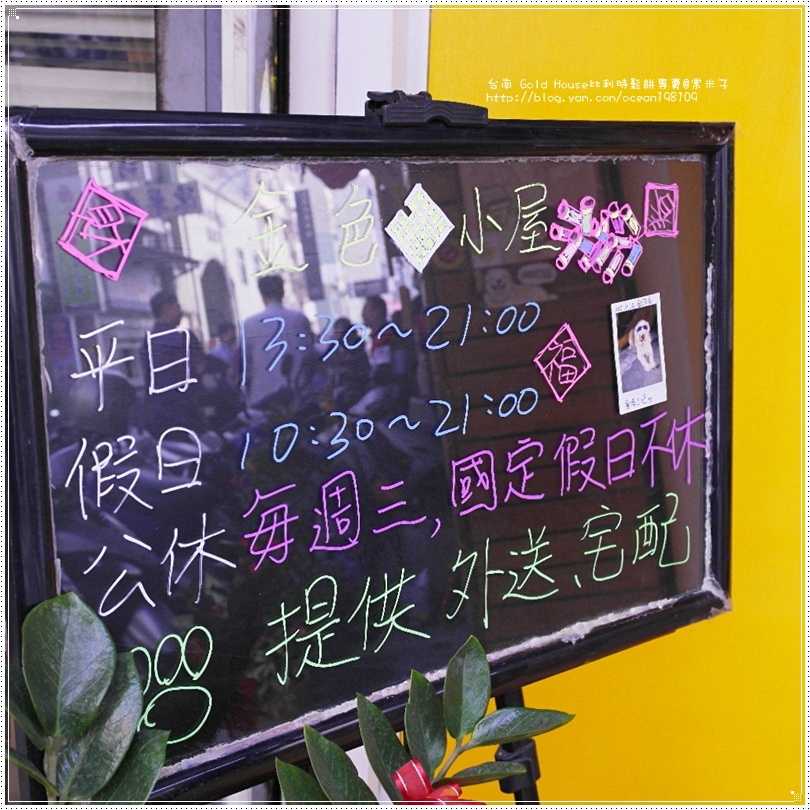 台南 Gold House比利時鬆餅專賣@常米子
http://blog.yam.com/ocean198109
財 金色小屋
平日 13:30~21:00
福
假日 10:30~21:00
公休 每週三,國定假日不休
提供 外送、宅配